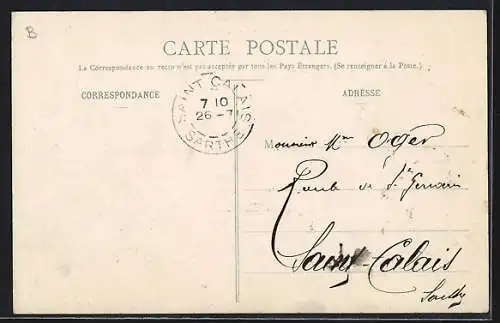 B
CARTE POSTALE
La Correspondance au recto n'est pas acceptée par tous les Pays Etrangers. (Se renseigner à la Poste.)
CORRESPONDANCE
ADRESSE
SAINT CALAIS
7 10
26 - 7
SARTHE
Monsieur Oger
Route de St Germain
Saint-Calais
Sarthe